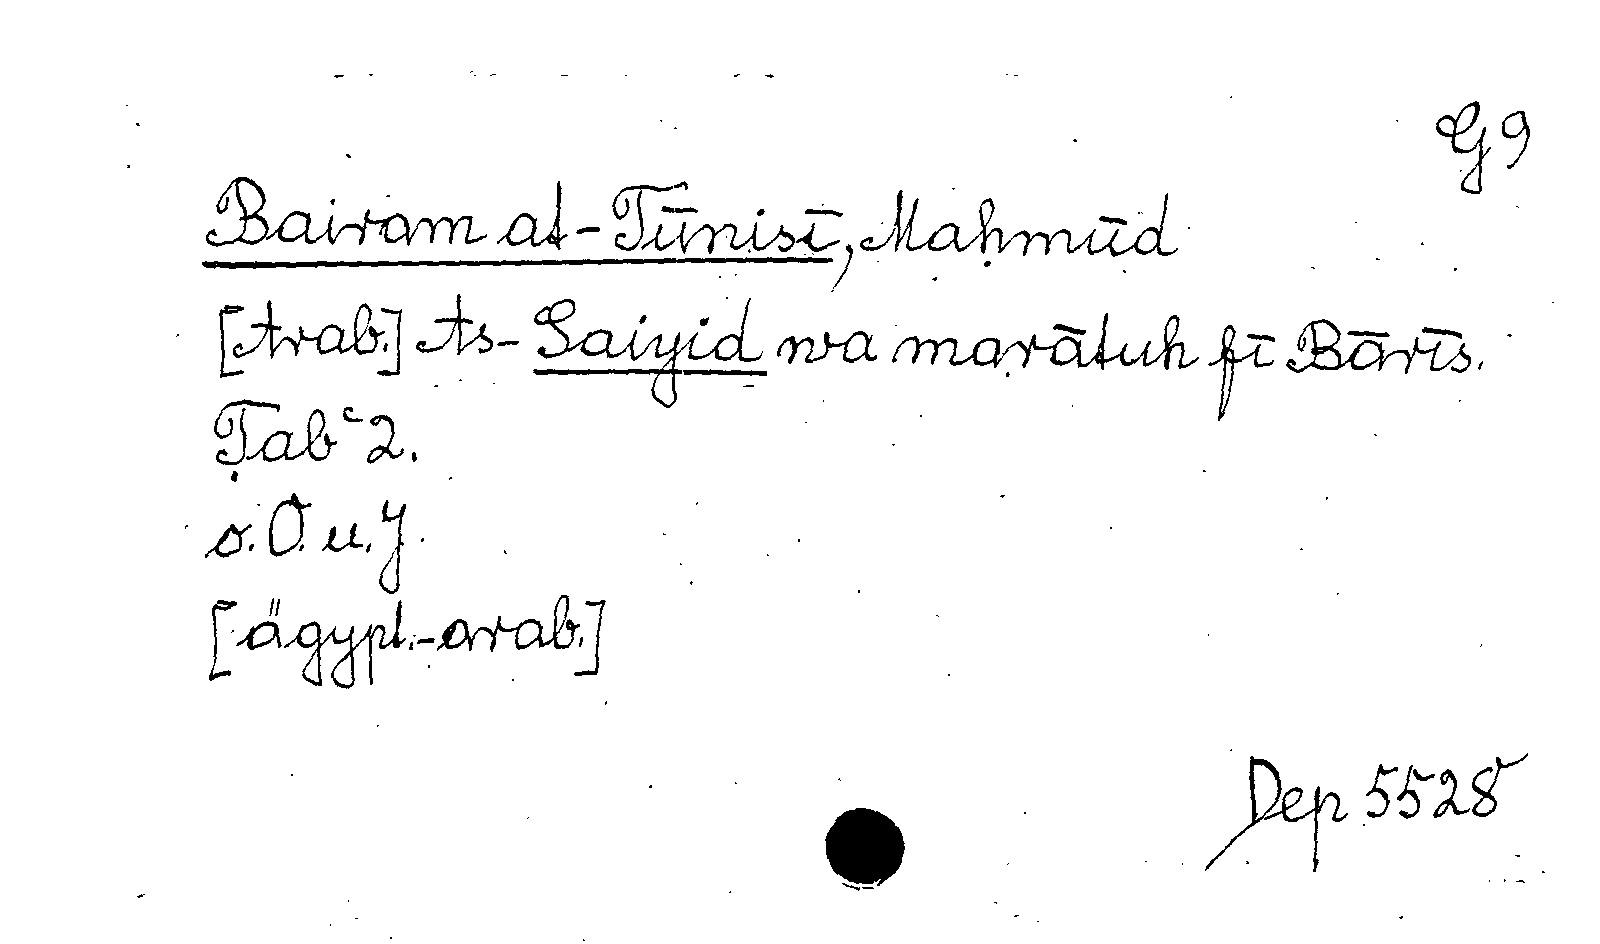 G 9
Bairam at-Tūnisī, Maḥmūd
[Arab.] As-Saiyid wa marātuh fī Bārīs.
Ṭabʿ 2.
o. O. u. J.
[ägypt.-arab.]
Dep 5528